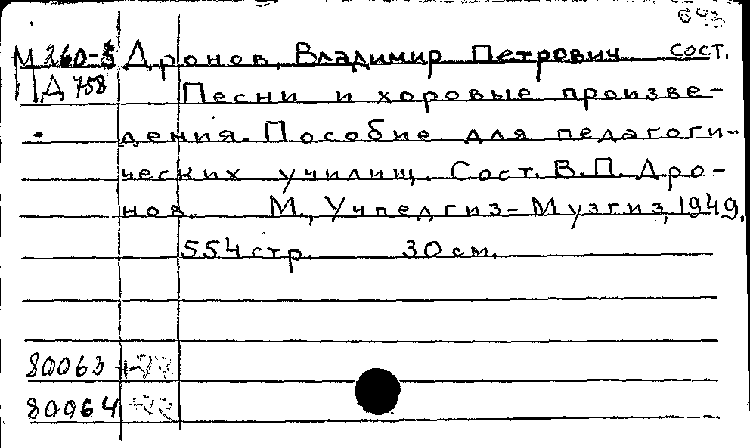 М 260-3 Дронов, Владимир Петрович сост.
Д 758 Песни и хоровые произве-
дения. Пособие для педагоги-
ческих училищ. Сост. В.П. Дро-
нов. М., Учпедгиз-Музгиз, 1949.
554 стр. 30 см.
80063
80064